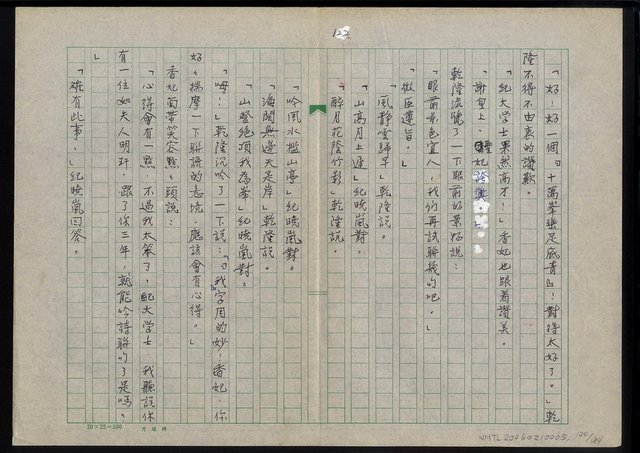 122
「好!好一個『十萬峯巒足底青』!對得太好了。」乾
隆不得不由衷的讚歎。
「紀大學士果然高才!」香妃也跟著讚美。
「謝皇上、香妃誇獎。」
乾隆流覽了一下眼前的景物說:
「眼前景色宜人,我們再試聯幾句吧。」
「微臣遵旨。」
「風靜雲歸早」乾隆說。
「山高月上遲」紀曉嵐對
「醉月花陰竹影」乾隆說。
「吟風水檻山亭」紀曉嵐對。
「海闊無邊天是岸」乾隆說。
「山登絕頂我為峯」紀曉嵐對。
「嗯!」乾隆沉吟了一下說:「『我』字用的妙!香妃,你
好好揣摩一下聯語的意境,應該會有心得。」
香妃面帶笑容點點頭說:
「心得會有一點,不過我太笨了!紀大學士,我聽說你
有一位如夫人明玕,跟了你三年,就能吟詩聯句了是嗎。
」
「確有此事。」紀曉嵐回答。
20×25=500
NMTL20060210005, 124/184